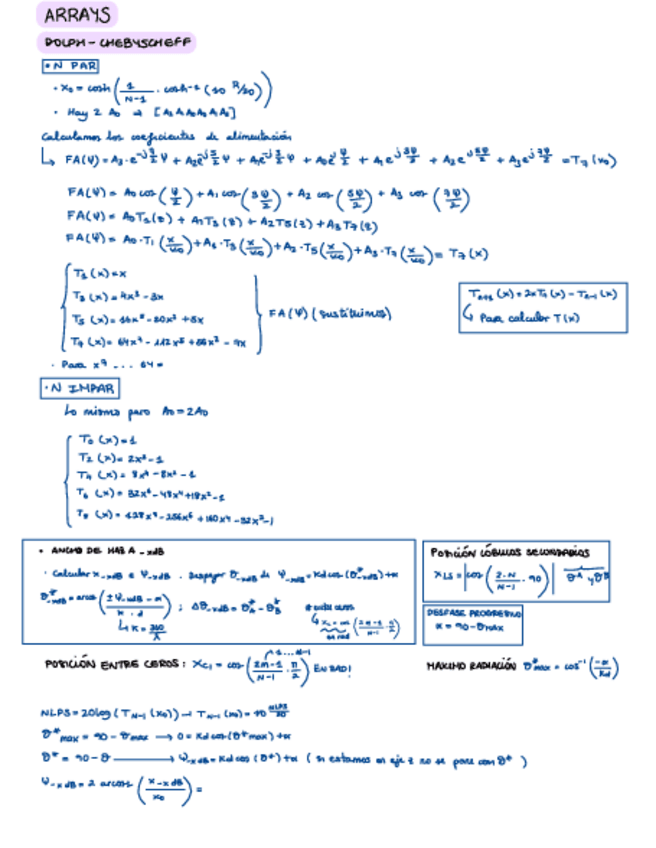 ARRAYS
DOLPH-CHEBYSCHEFF
• N PAR
• x₀ = cosh(1/(N-1) · cosh⁻¹(10^(R/20)))
• Hay 2 A₀ → [A₃ A₂ A₁ A₀ A₀ A₁ A₂ A₃]
Calculamos los coeficientes de alimentación
FA(Ψ) = A₃·e^(-j7/2Ψ) + A₂e^(-j5/2Ψ) + A₁e^(-j3/2Ψ) + A₀e^(jΨ/2) + A₁e^(j3Ψ/2) + A₂e^(j5Ψ/2) + A₃e^(j7Ψ/2) = T₇(x₀)
FA(Ψ) = A₀ cos(Ψ/2) + A₁ cos(3Ψ/2) + A₂ cos(5Ψ/2) + A₃ cos(7Ψ/2)
FA(Ψ) = A₀T₁(z) + A₁T₃(z) + A₂T₅(z) + A₃T₇(z)
FA(Ψ) = A₀·T₁(x/x₀) + A₁·T₃(x/x₀) + A₂·T₅(x/x₀) + A₃·T₇(x/x₀) = T₇(x)
T₁(x) = x
T₃(x) = 4x³ - 3x
T₅(x) = 16x⁵ - 20x³ + 5x
T₇(x) = 64x⁷ - 112x⁵ + 56x³ - 7x
FA(Ψ) (sustituimos)
Tₙ₊₁(x) = 2xTₙ(x) - Tₙ₋₁(x)
Para calcular T(x)
• Para x⁷ ... 64 =
• N IMPAR
Lo mismo pero A₀ = 2A₀
T₀(x) = 1
T₂(x) = 2x² - 1
T₄(x) = 8x⁴ - 8x² - 1
T₆(x) = 32x⁶ - 48x⁴ + 18x² - 1
T₈(x) = 128x⁸ - 256x⁶ + 160x⁴ - 32x² - 1
• ANCHO DE HAZ A -xdB
• Calcular x-xdB e Ψ-xdB . Despejar θ-xdB de Ψ-xdB = Kd cos(θ*-xdB) + α
θ*-xdB = arcos((±Ψ-xdB - α)/(K·d)) ; Δθ-xdB = θ*A - θ*B
K = 360/λ
* entre ceros
en rad
POSICIÓN LÓBULOS SECUNDARIOS
xLS = |cos(2·N/(N-1) · 90)| θA y θB
DESFASE PROGRESIVO
α = 90 - θmax
POSICIÓN ENTRE CEROS: xC1 = cos((2m-1)/(N-1) · π/2) EN RAD!
1...N-1
MAXIMO RADIACIÓN θ*max = cos⁻¹(-α/Kd)
NLPS = 20log(TN-1(x₀)) → TN-1(x₀) = 10^(NLPS/20)
θ*max = 90 - θmax → 0 = Kd cos(θ*max) + α
θ* = 90 - θ → Ψ-xdB = Kd cos(θ*) + α (si estamos en eje z no se pone con θ*)
Ψ-xdB = 2 arcos(x-xdB/x₀) =